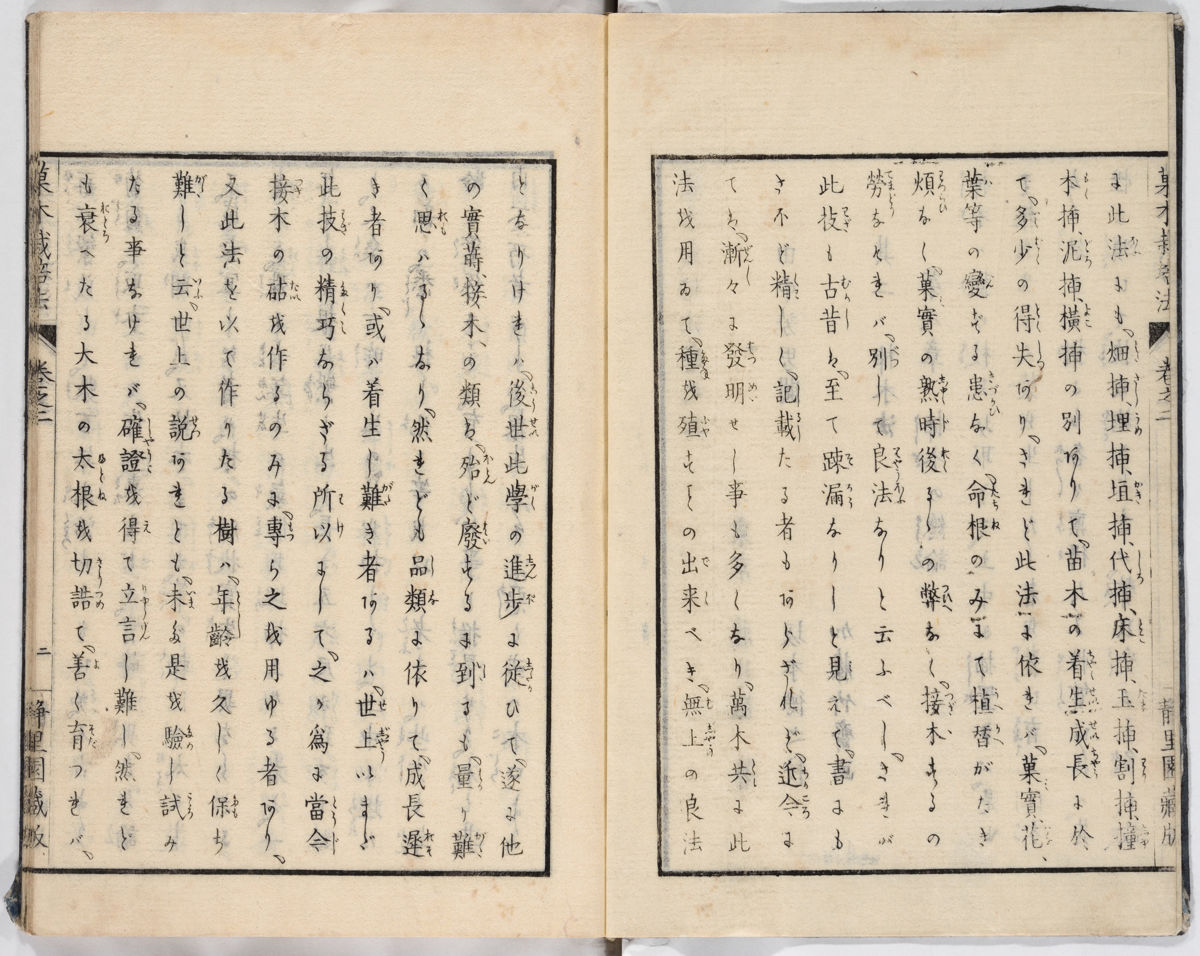 菓木栽培法 卷之二 靜里園藏版
に此法にも、畑挿、埋挿、垣挿、代挿、床挿、玉挿、割挿、撞
本挿、泥挿、横挿の別ありて、苗木の着生成長に於
て、多少の得失あり、されど此法に依れバ、菓實、花、
葉等の變ずる患なく、命根のみにて植替がたき
煩なく、菓實の熟時後るゝの弊なく、接木するの
勞なけれバ、別して良法なりと云ふべし、されバ
此技も古昔は、至て踈漏なりしと見えて、書にも
さ不ど精しく、記載たる者もあらざれど、近今に
ては、漸々に發明せし事も多くなり、萬木共に此
法を用ゐて、種を殖すその出来べき、無上の良法
となりけれハ、後世此學の進步に従ひて、遂に他
の實蒔、接木、の類は、殆ど廢するに到るも、量り難
く思ハるゝなり、然れども品類に依りて、成長遲
き者あり、或ハ着生し難き者あるハ、世上いまだ
此技の精巧ならざる所以にして、之か爲に當今
接木の砧を作るのみに専ら之を用ゆる者あり、
又此法を以て作りたる樹ハ、年齡を久しく保ち
難しと云、世上の説あれとも、未た是を驗し試み
たる事なけれバ、確證を得て立言し難し、然れど
も衰へたる大木の太根を切詰て、善く育つれバ、
菓木栽培法 卷之二 二 靜里園藏版